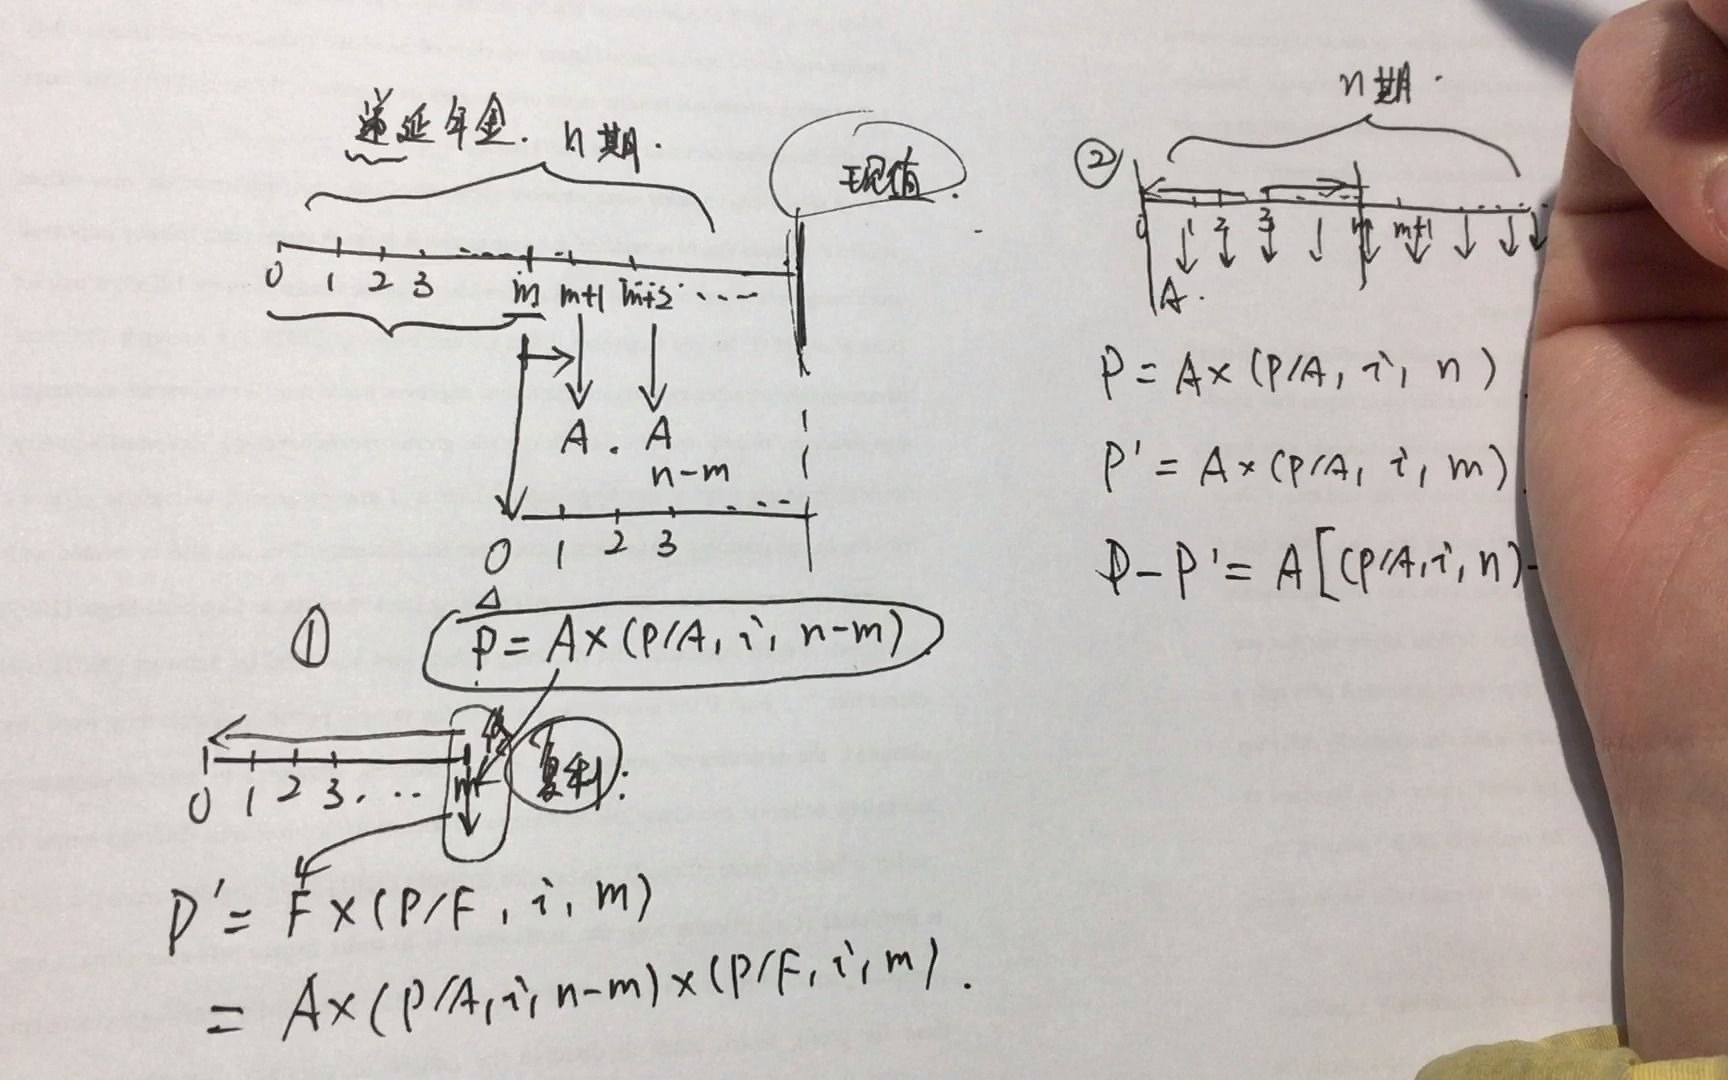 递延年金. n期.
现值.
0 1 2 3 ...... m m+1 m+2 ....
A . A
n-m
0 1 2 3 ...
①
P = A×(P/A, i, n-m)
0 1 2 3 ... m 复利:
P' = F×(P/F, i, m)
= A×(P/A, i, n-m)×(P/F, i, m).
② n期.
0 1 2 3 ... m m+1 ....
A.
P = A×(P/A, i, n)
P' = A×(P/A, i, m)
P-P' = A[(P/A, i, n)-